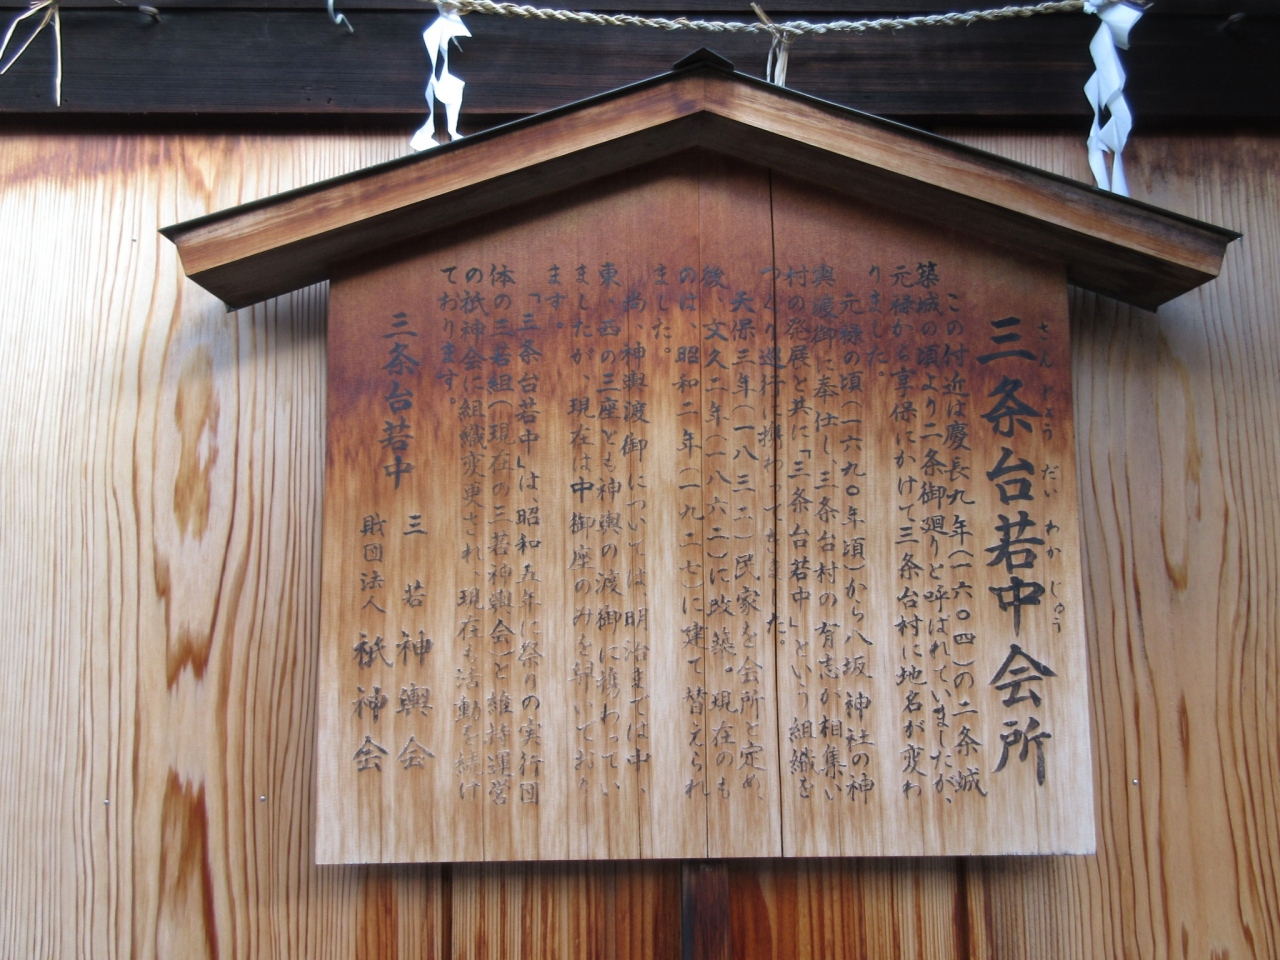 三条台若中会所
さんじょうだいわかじゅう
この付近は慶長九年(一六〇四)の二条城
築城の頃より二条御廻りと呼ばれていましたが、
元禄から享保にかけて三条台村に地名が変わ
りました。
元禄の頃(一六九〇年頃)から八坂神社の神
輿渡御に奉仕し、三条台村の有志が相集い
村の発展と共に「三条台若中」という組織を
つくり巡行に携わってきました。
天保三年(一八三二)民家を会所と定め、
後、文久二年(一八六二)に改築。現在のも
のは、昭和二年(一九二七)に建て替えられ
ました。
尚、神輿渡御については、明治までは中、
東、西の三座とも神輿の渡御に携わってい
ましたが、現在は中御座のみを舁いており
ます。
「三条台若中」は、昭和五年に祭りの実行団
体の三若組(現在の三若神輿会)と維持運営
の祇神会に組織変更され、現在も活動を続け
ております。
三条台若中
三若神輿会
財団法人 祇神会